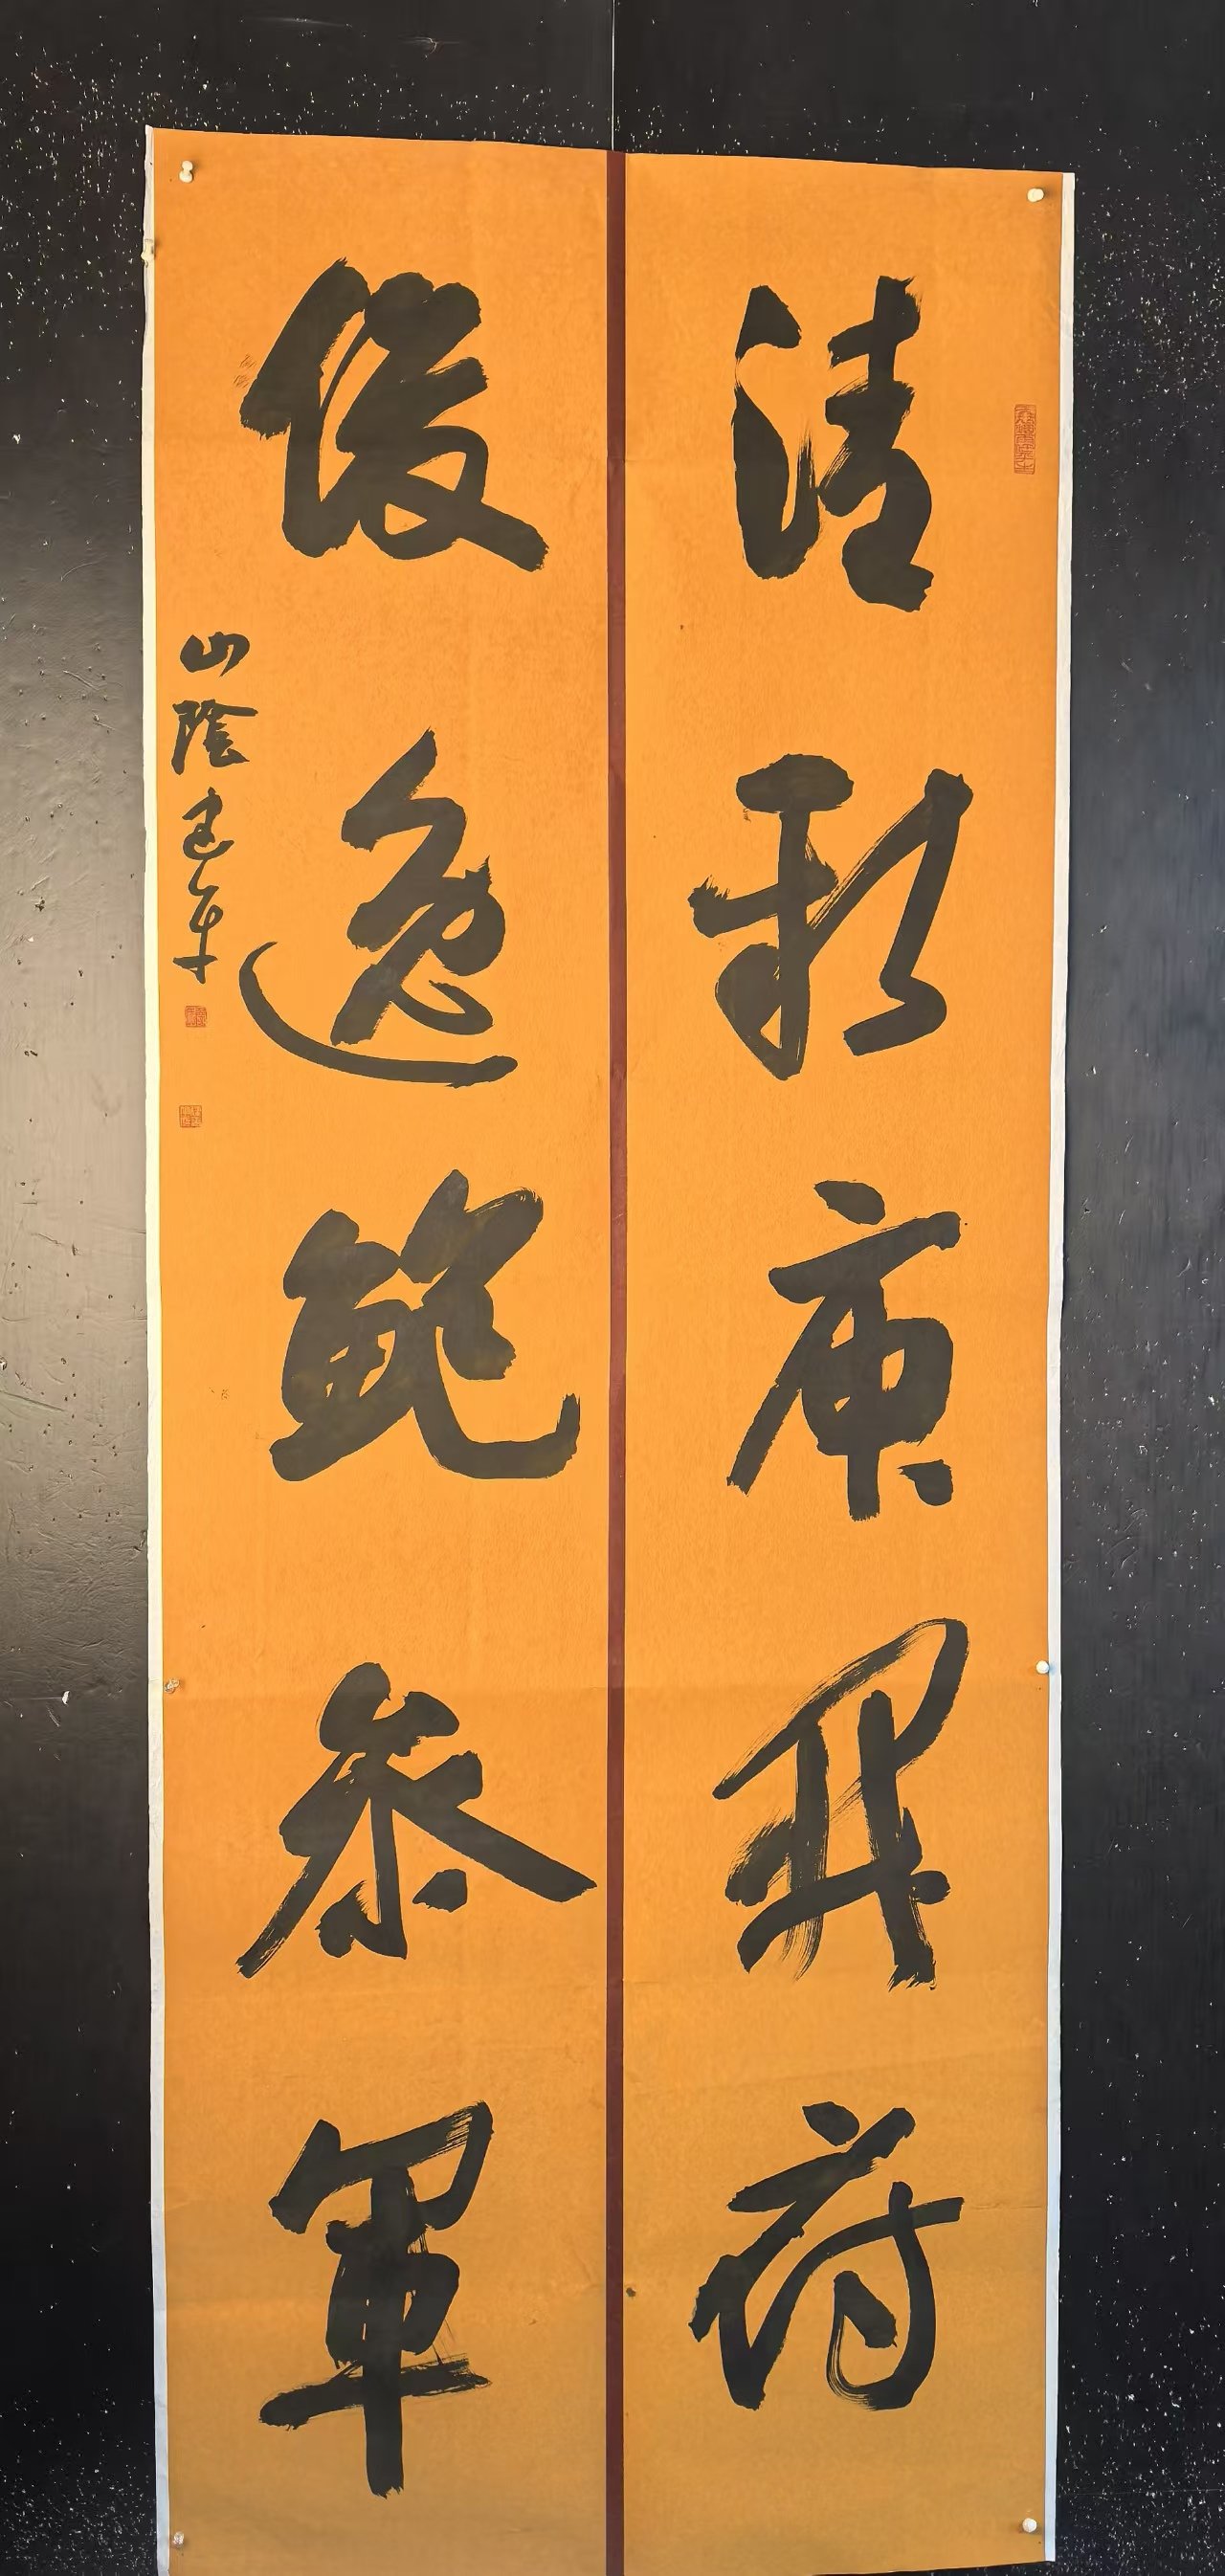 清新庾開府
俊逸鮑參軍
山陰建平